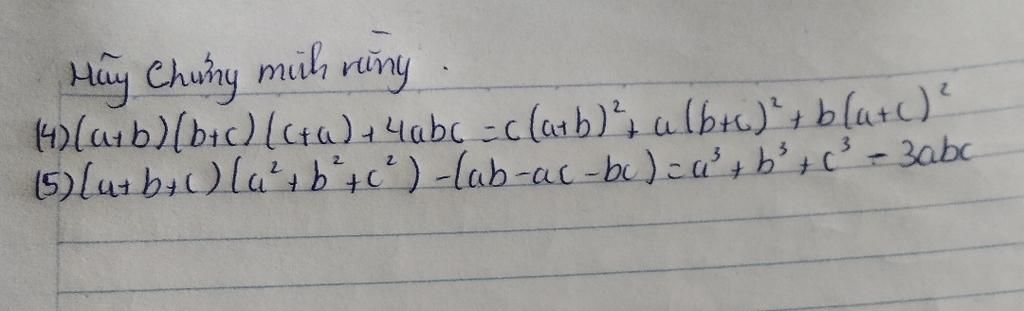 Hãy chứng minh rằng.
(4) (a+b)(b+c)(c+a)+4abc = c(a+b)²+a(b+c)²+b(a+c)²
(5) (a+b+c)(a²+b²+c²)-(ab-ac-bc)=a³+b³+c³-3abc